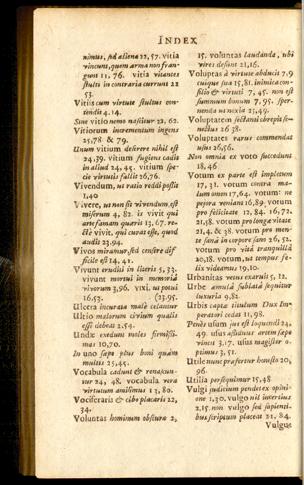 INDEX
nimus, sed aliena 22,57. vitia
vincunt, quem arma non fran-
gunt 11, 76. vitia vitantes
stulti in contraria currunt 22
53.
Vitiis cum virtute stultus con-
tendit 4.14.
Sine vitio nemo nascitur 22, 62.
Vitiorum incrementum ingens
25,78 & 79.
Unum vitium deserere nihil est
24,39. vitium fugiens cadis
in aliud 24, 45. vitium spe-
cie virtutis fallit 26,76.
Vivendum, ut ratio reddi possit
1,40
Vivere, us non sis vivendum, est
miserum 4, 82. is vivit qui
arte famam quæris 13,67. re-
ctè vivit, qui curat esse, quod
audit 23.94.
Vivos miramur, sed censere dif-
ficile est 14, 41.
Vivunt eruditi in libris 5, 33.
vivunt mortui in memoriâ
vivorum 3,96. vixi, us potui
16,53. (23.95.
Ulcera incurata malè celantur
Ultio malorum civium qualis
esse debeat 2.54.
Undæ exedunt moles firmissi-
mas 10,70.
In uno sæpe plus boni quàm
multis 25,45.
Vocabula cadunt & renascun-
tur 24, 48. vocabula vera
virtutum amisimus 13, 80.
Vociferatis & cibo placaris 22,
34.
Voluntas hominum obscura 2,
15. voluntas laudanda, ubi
vires desunt 21,16.
Voluptas à virtute abducis 7,9
cuique sua 15,81. inimica con-
silio & virtuti 7, 45. non est
summum bonum 7, 95. sper-
nenda us nocens 23,9.
Voluptatem sectandi obrepsit se-
nectus 26 38.
Voluptates rarus commendat
usus 26,56.
Non omnia ex voto succedunt
18,46
Votum ex parte est impletum
17, 31. votum contra ma-
lum omen 17,64. votum: ne
pejora veniant 16,89. votum
pro felicitate 12, 84. 16,72,
21,18. votum pro longa vitate
21,4. & 38. votum pro men-
te sana in corpore sano 26, 52.
votum pro vitâ tranquillâ
20,18. votum, us tempus fe-
lix videamus 19,10.
Urbanitas venus exaruit 5, 12.
Urbe amula sublata sequitur
luxuria 9,82.
Urbis capta tinctum Dux Im-
peratori cedas 11, 98.
Penès usum jus est loquendi 24,
49. usus assiduus artem sæpe
vincit 3.17. usus magister o-
primus 3, 51.
Utile nunc præfertur honesto 20,
96.
Utilia persequimur 15,48
Vulgi judicium pendet ex opini-
one 1,30. vulgo nil incertius
2,15. non vulgo sed sapienti-
bus scriptum placeat 21, 84.
Vulgus